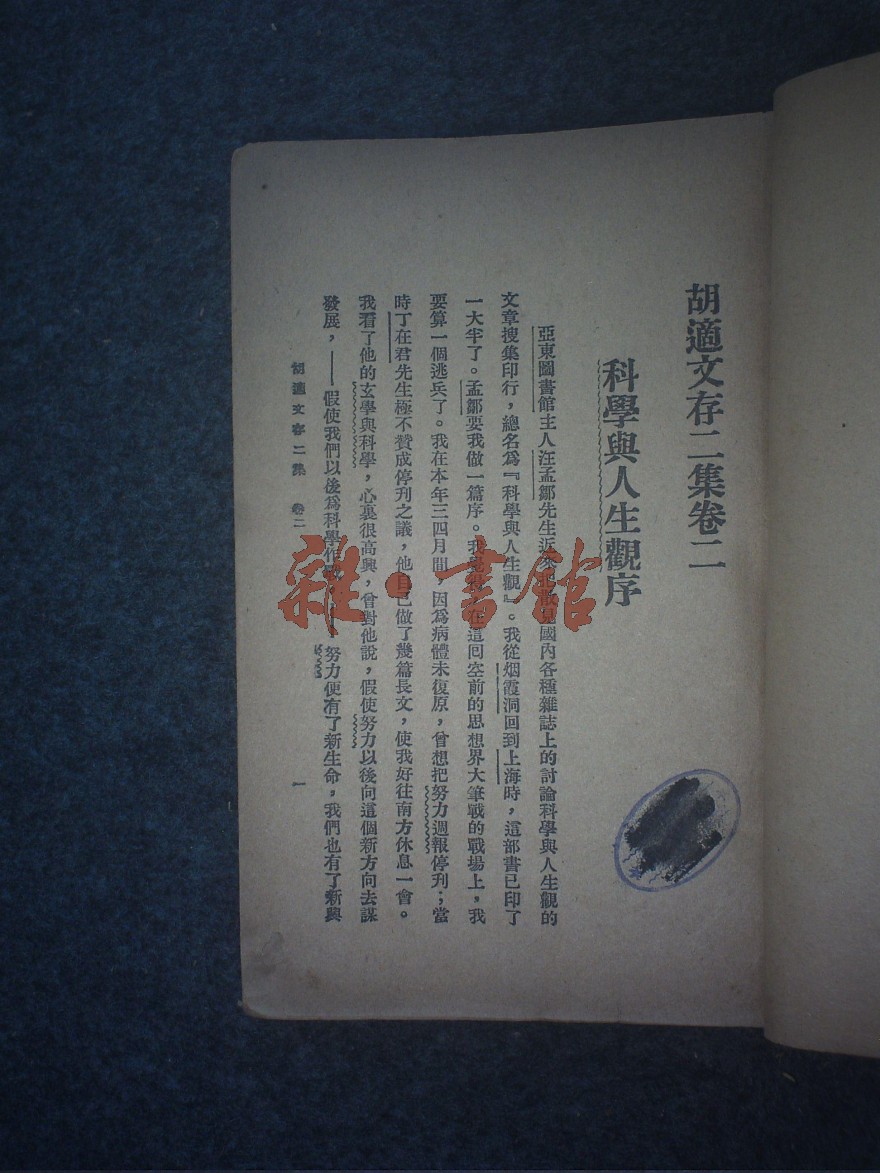 胡適文存二集卷二
科學與人生觀序
亞東圖書館主人汪孟鄒先生近來國內各種雜誌上的討論科學與人生觀的
文章搜集印行，總名為『科學與人生觀』。我從烟霞洞回到上海時，這部書已印了
一大半了。孟鄒要我做一篇序。我覺在這回空前的思想界大筆戰的戰場上，我
要算一個逃兵了。我在本年三四月間，因為病體未復原，曾想把努力週報停刊；當
時丁在君先生極不贊成停刊之議，他自己做了幾篇長文，使我好往南方休息一會。
我看了他的玄學與科學，心裏很高興，曾對他說，假使努力以後向這個新方向去謀
發展，——假使我們以後為科學作努力便有了新生命，我們也有了新興
胡適文存二集 卷二
一
雜·書館